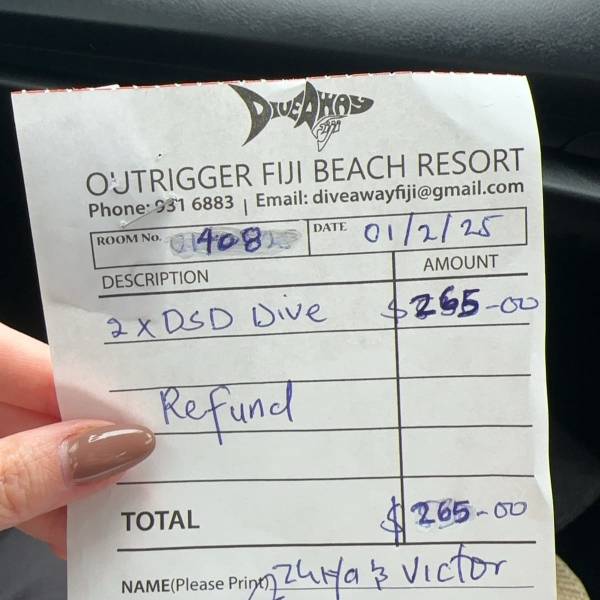 DIVEAWAY
Fiji
OUTRIGGER FIJI BEACH RESORT
Phone: 931 6883 | Email: diveawayfiji@gmail.com
ROOM No. 408 DATE 01/2/25
DESCRIPTION AMOUNT
2 x DSD Dive $265-00
Refund
TOTAL $265-00
NAME(Please Print) & Victor